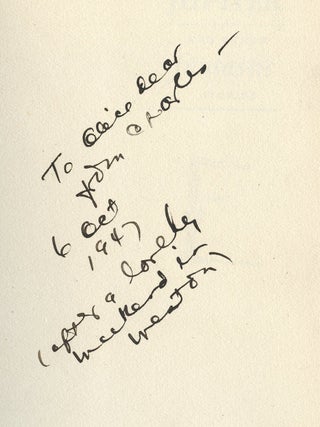 To Alice dear
from Charles –
6 Oct
1947
(after a lovely
weekend in
Weston)